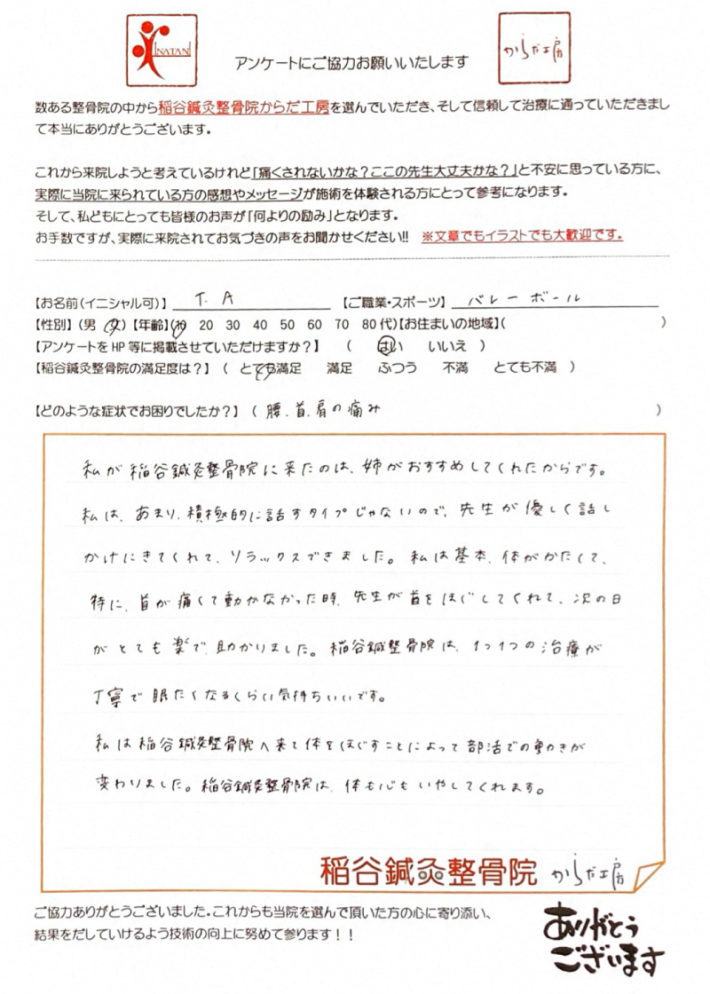 INATANI
アンケートにご協力お願いいたします
からだ工房
数ある整骨院の中から稲谷鍼灸整骨院からだ工房を選んでいただき、そして信頼して治療に通っていただきまし
て本当にありがとうございます。
これから来院しようと考えているけれど「痛くされないかな？ここの先生大丈夫かな？」と不安に思っている方に、
実際に当院に来られている方の感想やメッセージが施術を体験される方にとって参考になります。
そして、私どもにとっても皆様のお声が「何よりの励み」となります。
お手数ですが、実際に来院されてお気づきの声をお聞かせください!! ※文章でもイラストでも大歓迎です。
【お名前(イニシャル可)】 T. A 【ご職業・スポーツ】 バレーボール
【性別】 (男 女) 【年齢】(10 20 30 40 50 60 70 80代)【お住まいの地域】( )
【アンケートをHP等に掲載させていただけますか？】 ( はい いいえ )
【稲谷鍼灸整骨院の満足度は？】 ( とても満足 満足 ふつう 不満 とても不満 )
【どのような症状でお困りでしたか？】 ( 腰、首、肩の痛み )
私が稲谷鍼灸整骨院に来たのは、姉がおすすめしてくれたからです。
私は、あまり、積極的に話すタイプじゃないので、先生が優しく話し
かけにきてくれて、リラックスできました。私は基本、体がかたくて、
特に、首が痛くて動かなかった時、先生が首をほぐしてくれて、次の日
がとても楽で、助かりました。稲谷鍼灸整骨院は、1つ1つの治療が
丁寧で眠たくなるくらい気持ちいいです。
私は稲谷鍼灸整骨院へ来て体をほぐすことによって部活での動きが
変わりました。稲谷鍼灸整骨院は、体も心もいやしてくれます。
稲谷鍼灸整骨院 からだ工房
ご協力ありがとうございました。これからも当院を選んで頂いた方の心に寄り添い、
結果をだしていけるよう技術の向上に努めて参ります！！
ありがとう
ございます